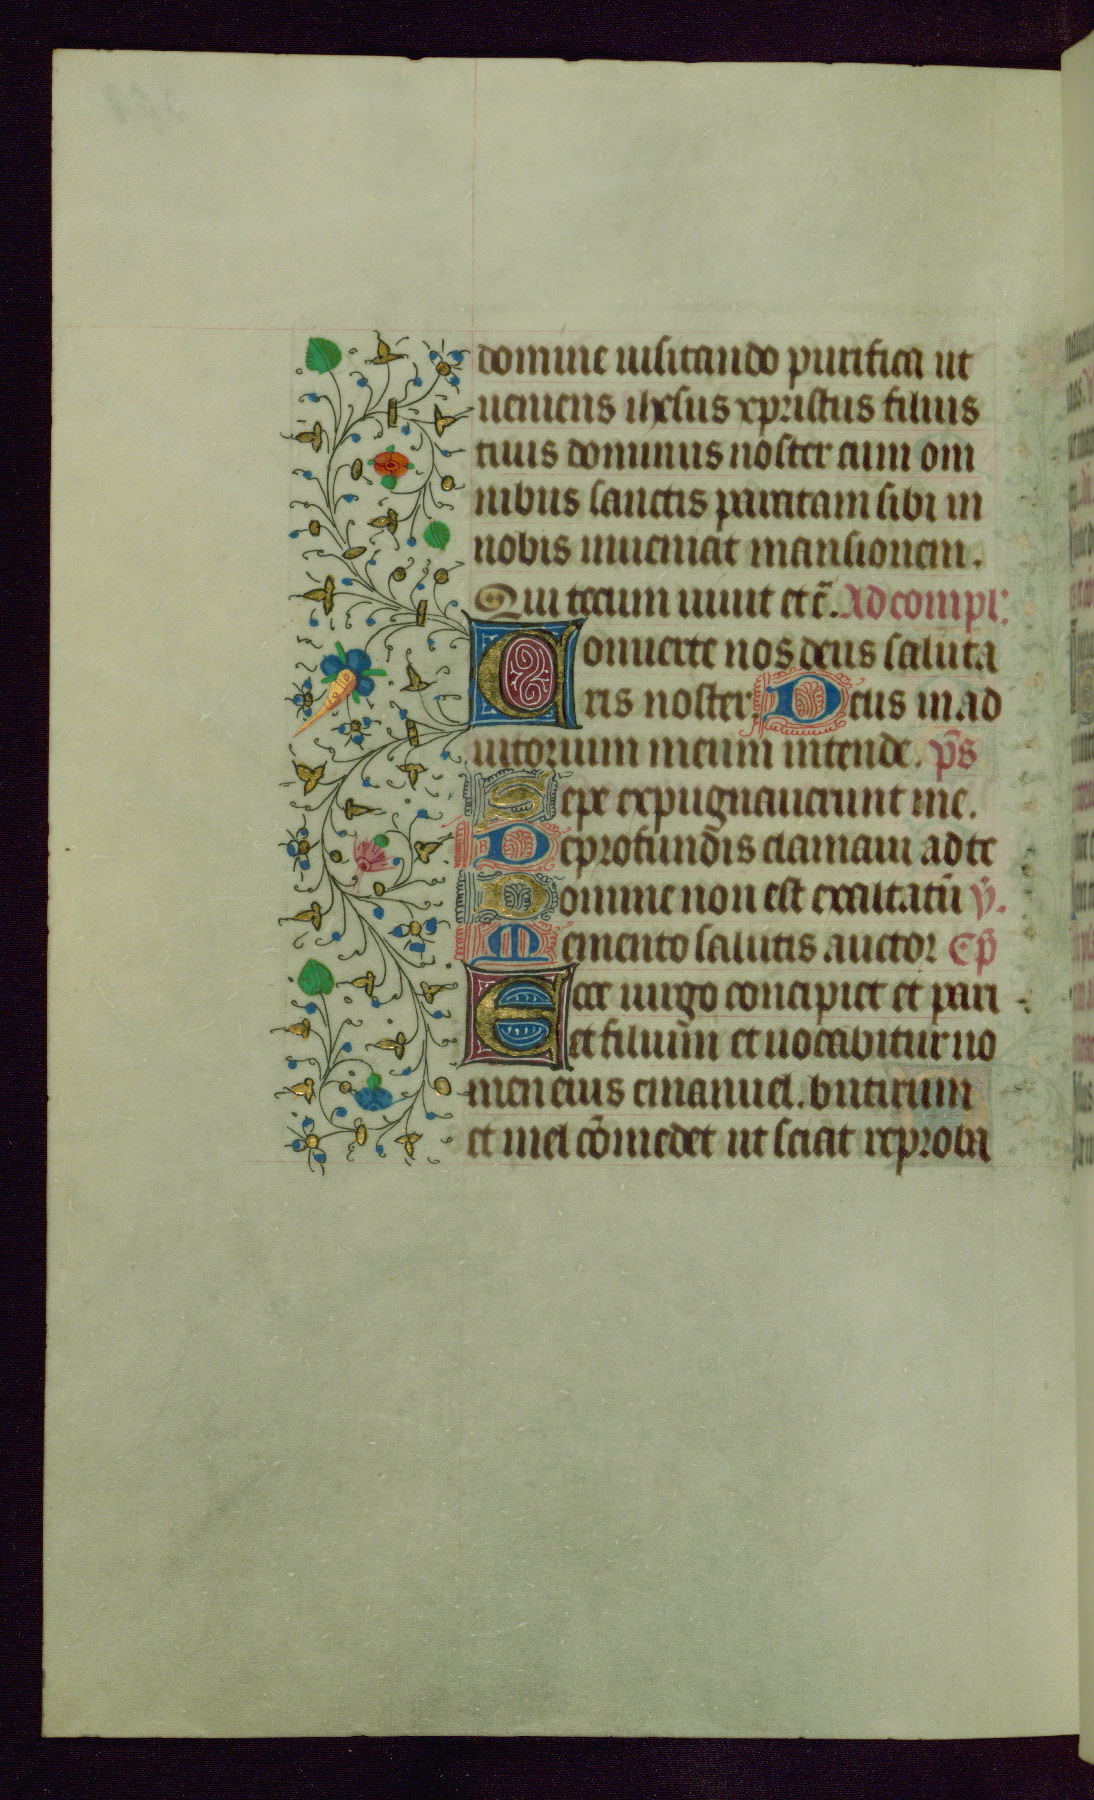 domine uisitando purifica ut
ueniens ihesus xpristus filius
tuus dominus noster cum om
nibus sanctis paratam sibi in
nobis inueniat mansionem.
Qui tecum uiuit et c̄. Ad compl'
Conuerte nos deus saluta
ris noster. Deus in ad
iutorium meum intende. p̄s
Sepe expugnauerunt me.
De profundis clamaui ad te
Domine non est exaltatū ỹ.
Memento salutis auctor Ep̄
Ecce uirgo concipiet et pari
et filium et uocabitur no
men eius emanuel. butirum
et mel cōmedet ut sciat reproba